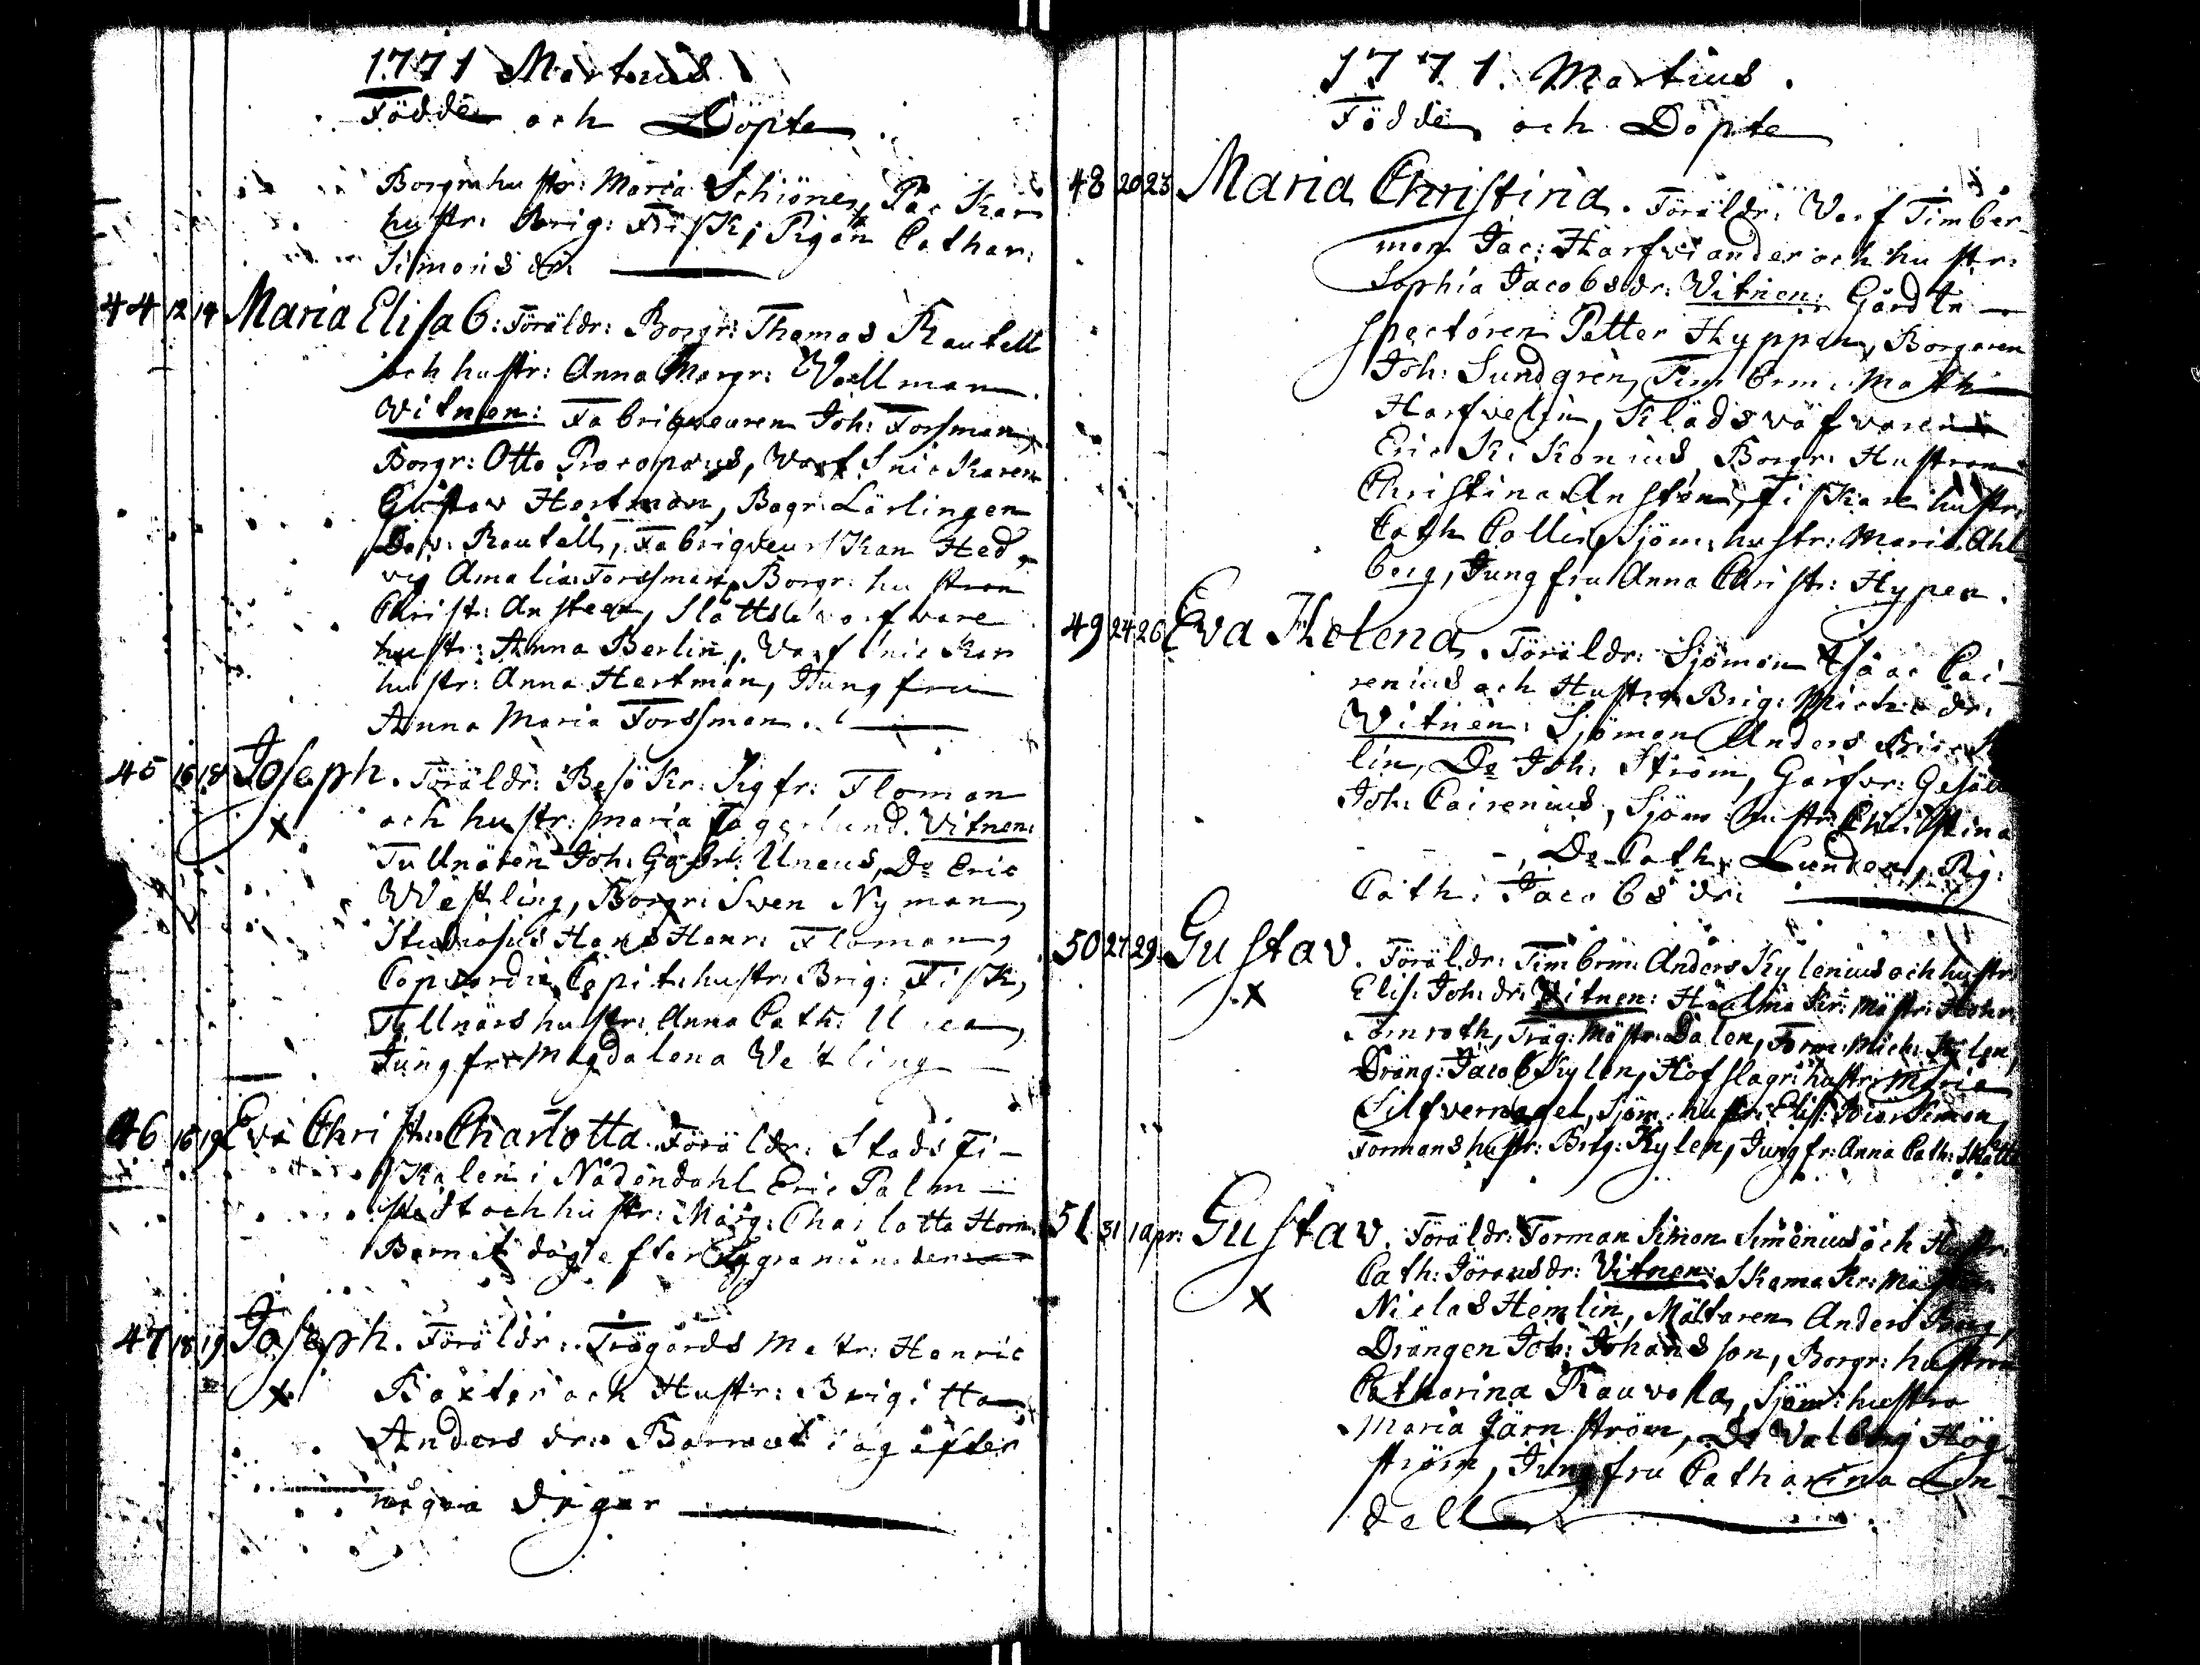 1771 Martius
Födde och Döpte
Borgm hustr: Maria Schiönes, Pac Kar
hustr: Brig: Fisk, Pigan Cathar:
Simons dr:
44 12 14 Maria Elisab: Föräldr: Borgr: Thomas Rautell
och hustr: Anna Margr: Wallman
Witnen: Fabriqueuren Joh: Forsman,
Borgr: Otto Procopæus, Varf Snickaren
Gustav Hertman, Bagr: Lärlingen
Dav: Rautell, Fabriqveurskan Hed
vig Amalia Forssman, Borgr: hustron
Christ: Ansteen, Slotts
hustr: Anna Berlin, Varf Snickar
hustr: Anna Hertman, Jungfru
Anna Maria Forssman.
45 16 18 Joseph. Föräldr: Besökr: Sigfr: Floman
X och hustr: Maria Fagerlund. Vitnen:
Tullnären Joh: Gabr: Uneus, Do Eric
Westling, Borgr: Swen Nyman,
Studiosus Hans Henr: Floman,
Capit: hustr: Brig: Fisk,
Tullnärs hustr: Anna Cath:
Jungfr: Magdalena Westling
46 16 19 Eva Christ: Charlotta. Föräldr: Stads Fi-
skalen i Nådendahl Eric Palm-
stedt och hustr: Marg: Charlotta Horn.
Barnet dog efter några månader
47 18 19 Joseph. Föräldr: Trägårds Mestr: Henric
X Baxter och Hustr: Brigitta
Anders dr: Barnet dog äfter
några dagar
1771. Martius.
Födde och Döpte
48 20 23 Maria Christina. Föräldr: Varf Timber-
man Jac: Harfviander och hustr:
Sophia Jacobs dr: Witnen: Gård In-
spectoren Petter Hyppen, Borgaren
Joh: Sundgren, Timberm: Math
Harfvelin, Klädsväfvaren
Eric Kekonius, Borgr: Hustron
Christina Ansten, Fiskare hustr:
Cath Collin, Sjöm: hustr: Maria Ahl
berg, Jungfru Anna Christr: Hypen.
49 24 26 Eva Helena. Föräldr: Sjöman Isaac Cai-
renius och Hustr: Brig: Michels dr:
Witnen: Sjöman Anders Birck
lin, Do Joh: Ström, Garfvr: Gesäll
Joh: Cairenius, Sjöm: hustr: Christina
- - -, Do Cath: Lunden, Pig:
Cath: Jacobs dr:
50 27 29 Gustav. Föräldr: Timberm: Anders Kylenius och hustr:
X Elis: Joh: dr: Vitnen: Mästr: Henr:
Tömroth, Träg: Mästr: Dalen, Form: Mich: Kylen,
Dräng: Jacob Kylen, Hofslagr: hustr: Maria
Silfvernagel, Sjöm: hustr: Elis:
Formans hustr: Brig: Kylen, Jungfr: Anna Cath:
51 31 1 apr: Gustav. Föräldr: Forman Simon Simenius och Hustr:
X Cath: Jörans dr: Vitnen: Skomakr: Mästaren
Niclas Hemlin, Mältaren Anders Berg,
Drängen Joh: Johansson, Borgr: hustru
Catharina Rauvola, Sjöm: hustru
Maria Järnström, Do Valborg Hög
ström, Jungfru Catharina Lin-
dell